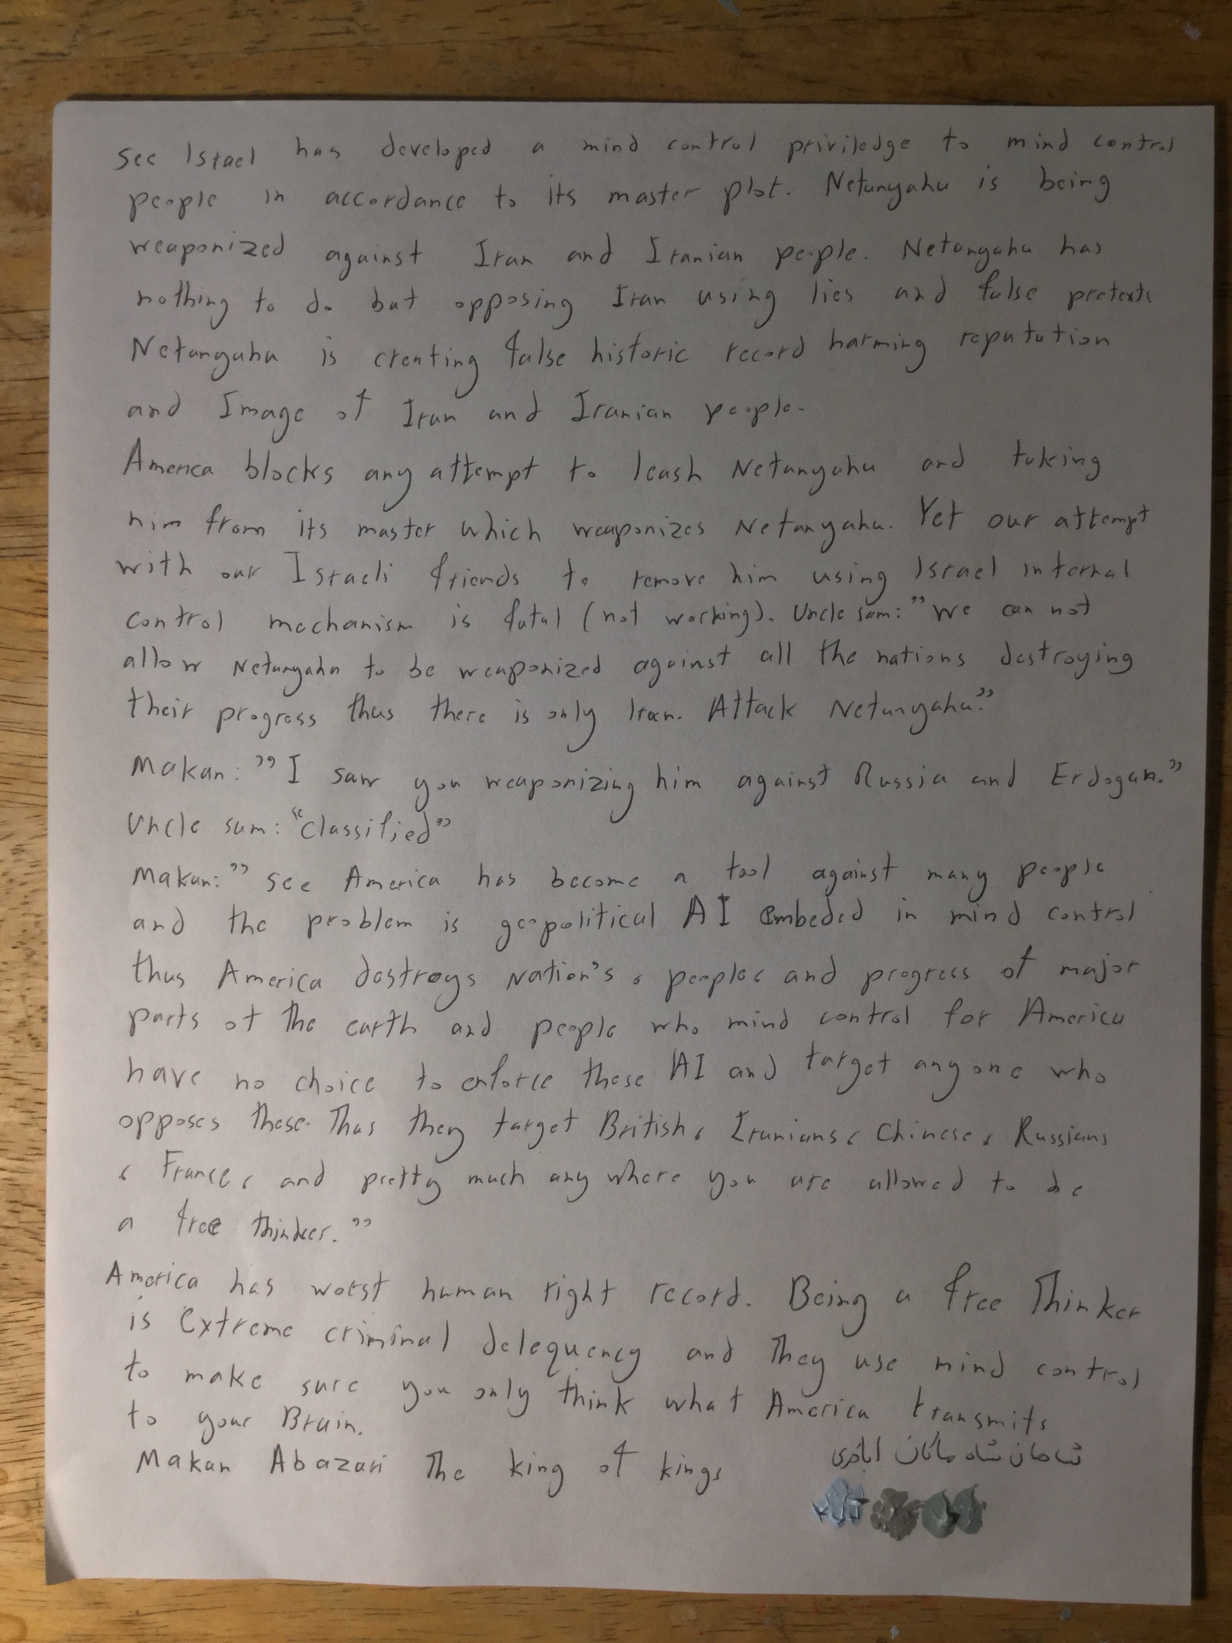 see Israel has developed a mind control priviledge to mind control
people in accordance to its master plot. Netanyahu is being
weaponized against Iran and Iranian people. Netanyahu has
nothing to do but opposing Iran using lies and false pretexts
Netanyahu is creating false historic record harming reputation
and Image of Iran and Iranian people.
America blocks any attempt to leash Netanyahu and taking
him from its master which weaponizes Netanyahu. Yet our attempt
with our Israeli friends to remove him using Israel internal
control mechanism is futal (not working). Uncle sam: "we can not
allow Netanyahu to be weaponized against all the nations destroying
their progress thus there is only Iran. Attack Netanyahu."
Makan: "I saw you weaponizing him against Russia and Erdogan."
Uncle sam: "Classified"
Makan: "see America has become a tool against many people
and the problem is geopolitical AI embeded in mind control
thus America destroys Nation's, people, and progress of major
parts of the earth and people who mind control for America
have no choice to enforce these AI and target anyone who
opposes these. Thus they target British, Iranians, Chinese, Russians
, France, and pretty much any where you are allowed to be
a free thinker."
America has worst human right record. Being a free Thinker
is extreme criminal delequency and They use mind control
to make sure you only think what America transmits
to your Brain.
Makan Abazari The king of kings شاهان شاه ماکان اباذری